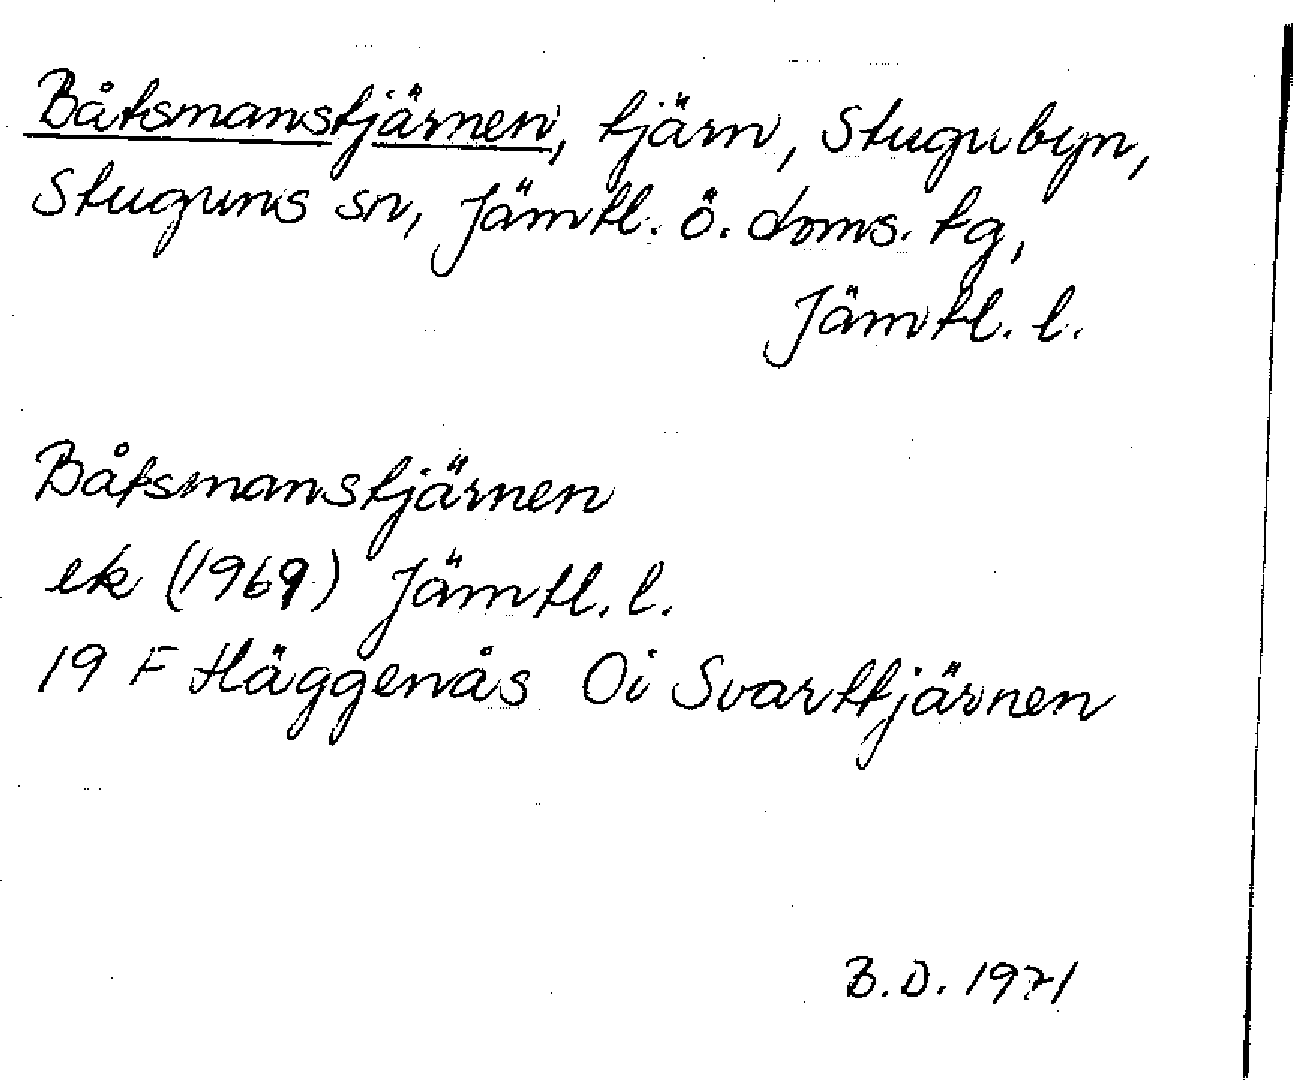 Båtsmanstjärnen, tjärn, Stugubyn,
Stuguns sn, Jämtl. ö. doms. tg,
Jämtl. l.
Båtsmanstjärnen
ek (1969) Jämtl. l.
19 F Häggenås Oi Svarttjärnen
B.D. 1971